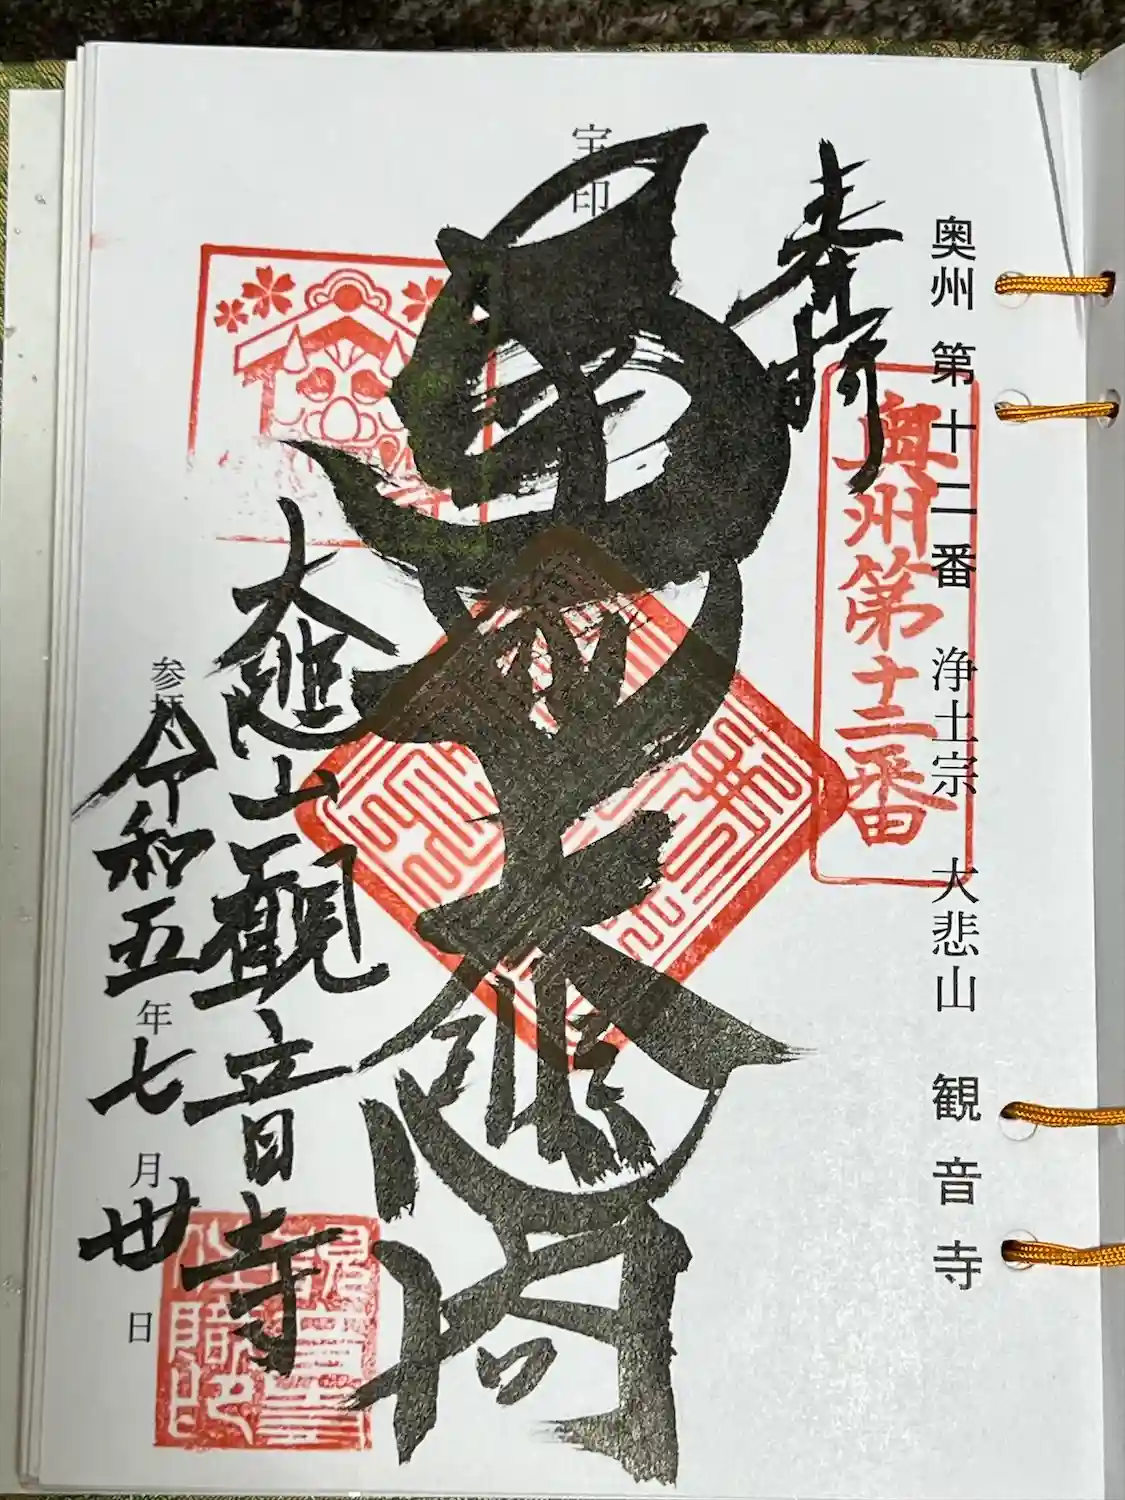 奥州 第十二番 浄土宗 大悲山 観音寺
奥州第十二番
奉拝
宝印
大悲閣
大悲山観音寺
参拝
令和五年七月卅日